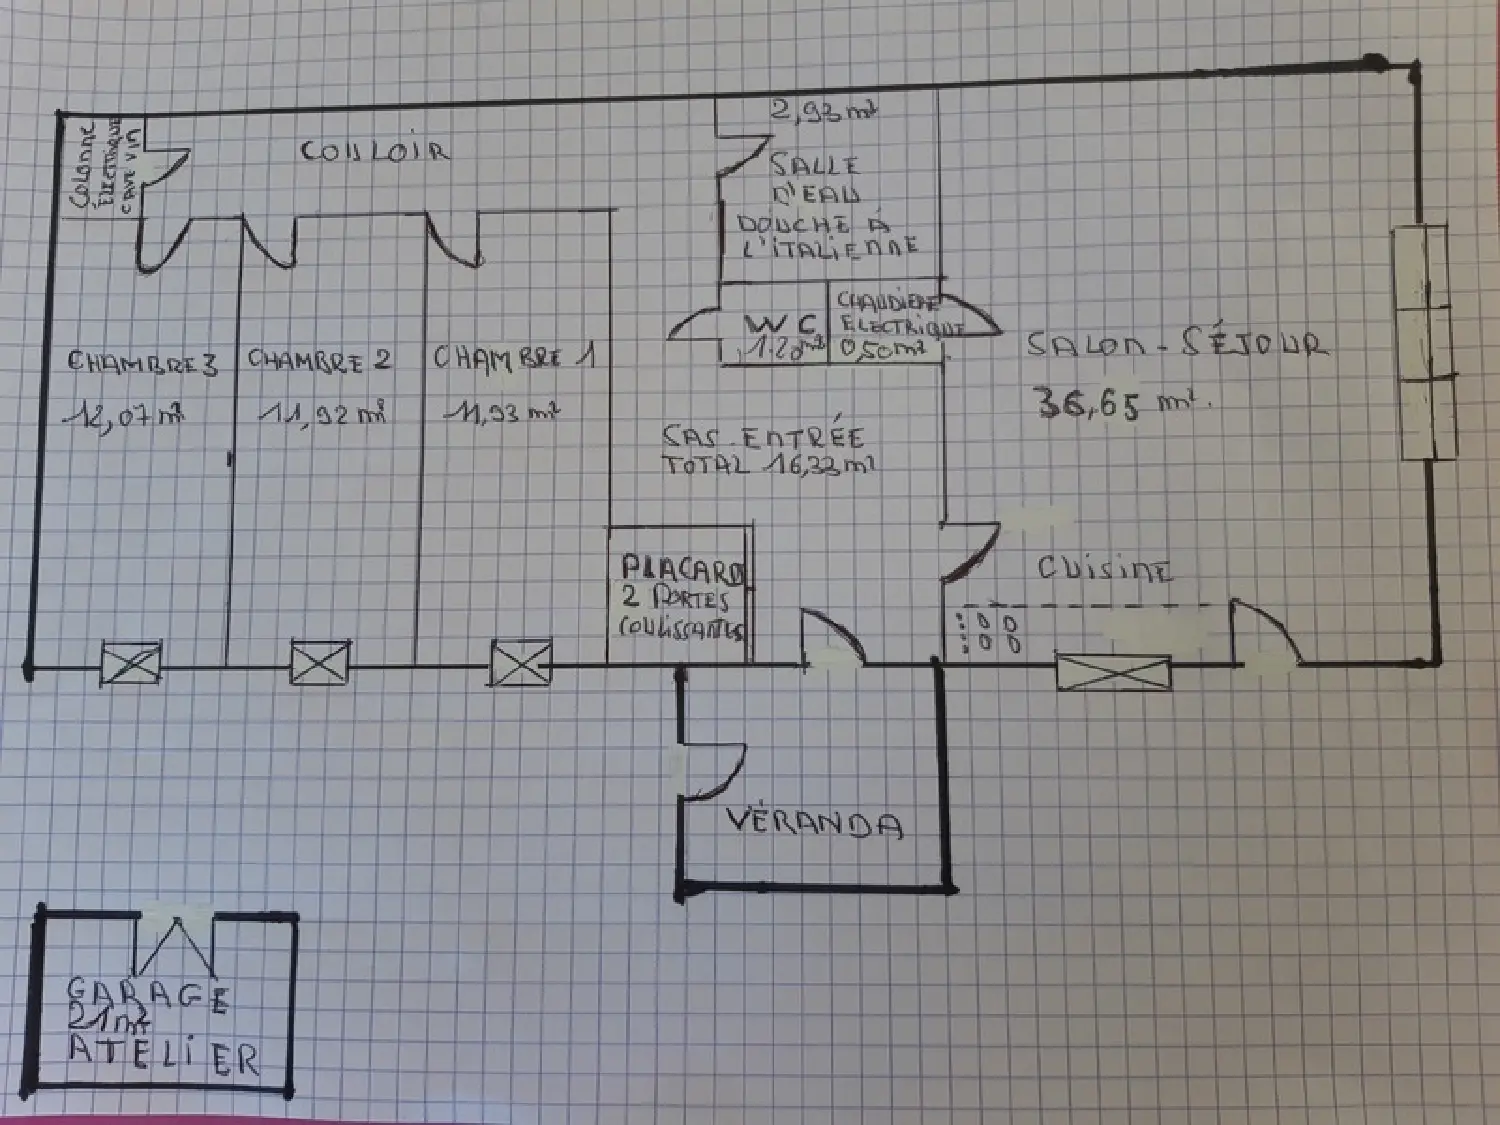 COLONNE
ÉLECTRIQUE
CAVE VIN
COULOIR
2,93 m²
SALLE
D'EAU
DOUCHE À
L'ITALIENNE
WC
1.20m²
CHAUDIERE
ELECTRIQUE
0,50m²
SALON - SÉJOUR
36,65 m².
CHAMBRE 3
12,07 m²
CHAMBRE 2
11,92 m²
CHAMBRE 1
11,93 m²
SAS ENTRÉE
TOTAL 16,33 m²
PLACARD
2 PORTES
COULISSANTES
CUISINE
VÉRANDA
GARAGE
21m²
ATELIER